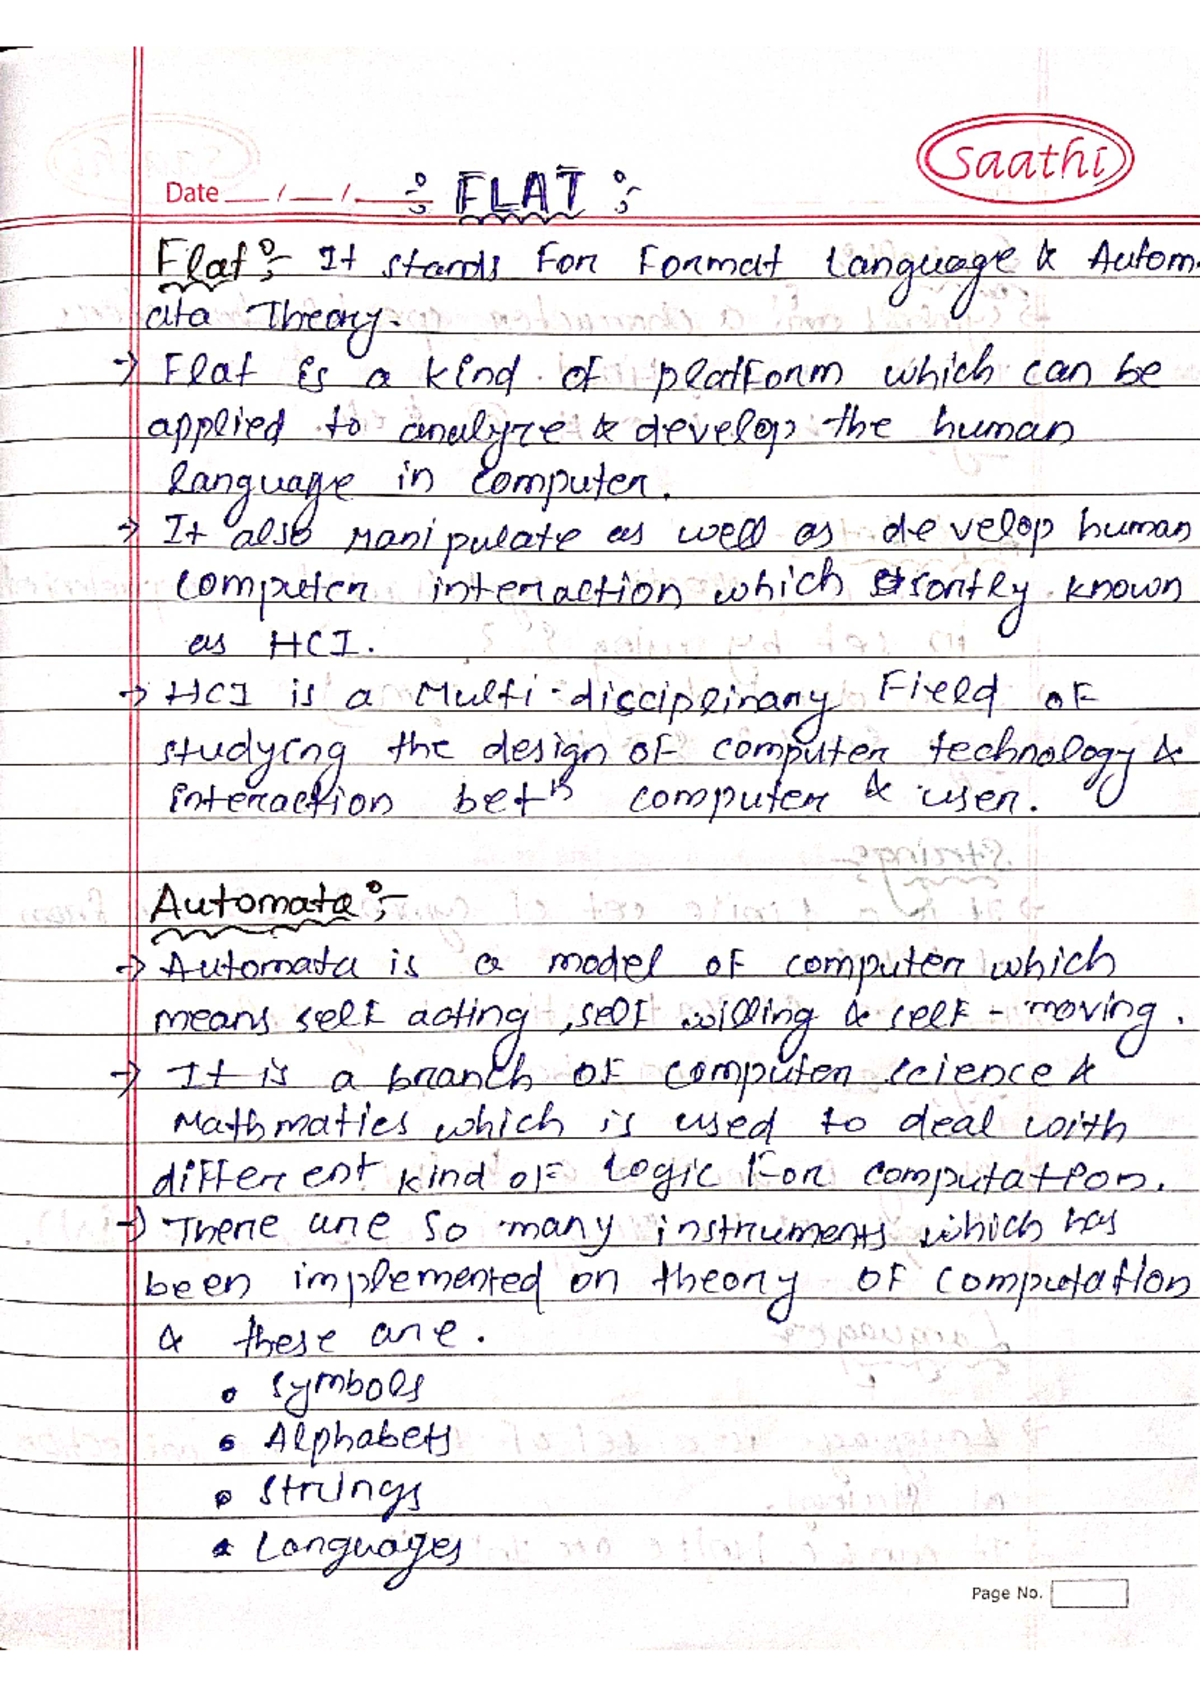 saathi
Date __/__/__ :- FLAT :-
Flat :- It stands For Format Language & Autom-
ata Theory.
→ Flat is a kind of platForm which can be
applied to analyze & develop the human
language in computer.
→ It also Manipulate as well as develop human
computer interaction which is known
as HCI.
→ HCI is a Multi-disciplinary Field of
studying the design of computer technology &
interaction betⁿ computer & user.
Automata :-
→ Automata is a model of computer which
means self acting, self willing & self-moving.
→ It is a branch of computer science &
Mathmatics which is used to deal with
different kind of Logic For computation.
→ There are so many instruments which has
been implemented on theory of computation
& these are.
• Symbols
• Alphabets
• Strings
• Languages
Page No.